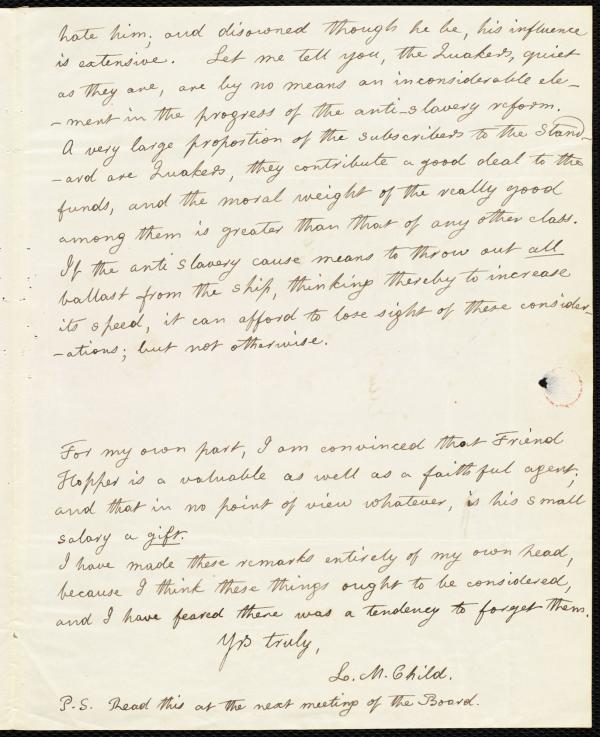 hate him; and disowned though he be, his influence
is extensive. Let me tell you, the Quakers, quiet
as they are, are by no means an inconsiderable ele-
-ment in the progress of the anti-slavery reform.
A very large proportion of the subscribers to the Stand-
-ard are Quakers, they contribute a good deal to the
funds, and the moral weight of the really good
among them is greater than that of any other class.
If the anti slavery cause means to throw out all
ballast from the ship, thinking thereby to increase
its speed, it can afford to lose sight of these consider-
-ations; but not otherwise.
For my own part, I am convinced that Friend
Hopper is a valuable as well as a faithful agent;
and that in no point of view whatever, is his small
salary a gift.
I have made these remarks entirely of my own head,
because I think these things ought to be considered,
and I have feared there was a tendency to forget them.
Yrs truly,
L. M. Child.
P.S. Read this at the next meeting of the Board.